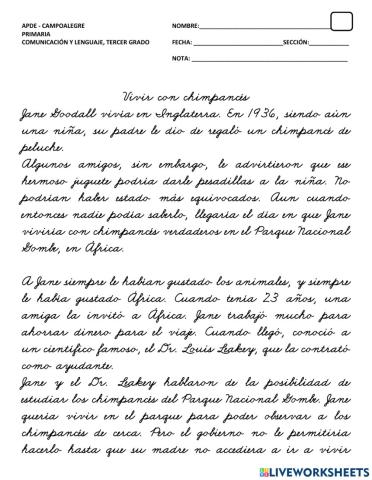 APDE - CAMPOALEGRE
PRIMARIA
COMUNICACIÓN Y LENGUAJE, TERCER GRADO
NOMBRE:
FECHA: SECCIÓN:
NOTA:
Vivir con chimpancés
Jane Goodall vivía en Inglaterra. En 1936, siendo aún
una niña, su padre le dio de regaló un chimpancé de
peluche.
Algunos amigos, sin embargo, le advirtieron que ese
hermoso juguete podría darle pesadillas a la niña. No
podrían haber estado más equivocados. Aun cuando
entonces nadie podía saberlo, llegaría el día en que Jane
viviría con chimpancés verdaderos en el Parque Nacional
Gombe, en África.
A Jane siempre le habían gustado los animales, y siempre
le había gustado África. Cuando tenía 23 años, una
amiga la invitó a África. Jane trabajó mucho para
ahorrar dinero para el viaje. Cuando llegó, conoció a
un científico famoso, el Dr. Louis Leakey, que la contrató
como ayudante.
Jane y el Dr. Leakey hablaron de la posibilidad de
estudiar los chimpancés del Parque Nacional Gombe. Jane
quería vivir en el parque para poder observar a los
chimpancés de cerca. Pero el gobierno no le permitiría
hacerlo hasta que su madre no accediera a ir a vivir
LIVEWORKSHEETS